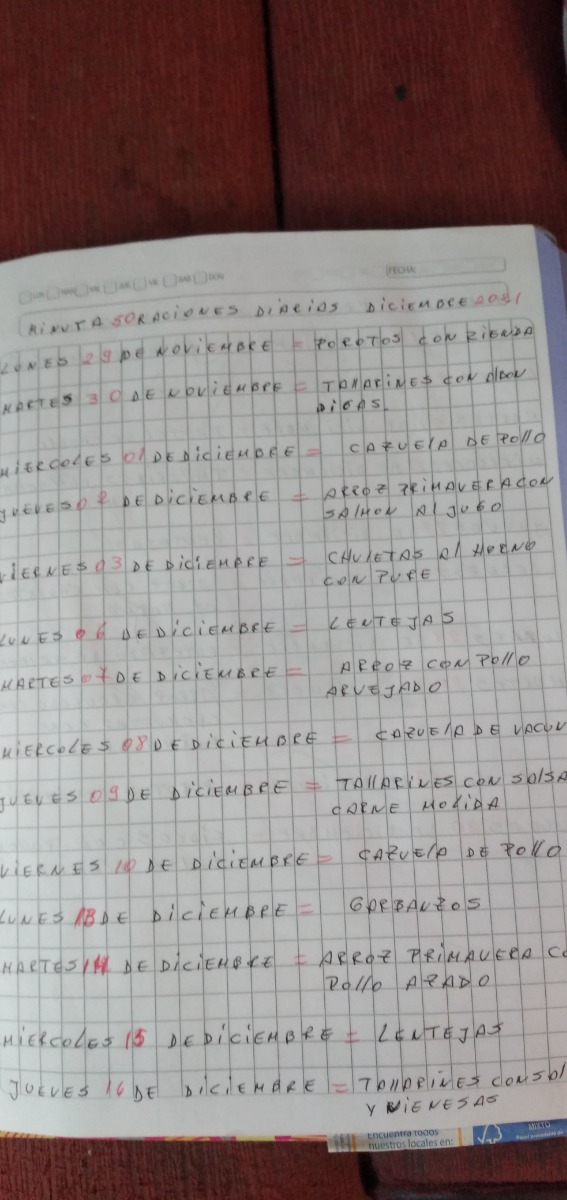 LUN MAR MIE JUE VIE SAB DOM FECHA:
MINUTA 50 RACIONES DIARIAS DICIEMBRE 2021
LUNES 29 DE NOVIEMBRE = POROTOS CON RIENDA
MARTES 30 DE NOVIEMBRE = TALLARINES CON ALBON
DIGAS
MIERCOLES 01 DE DICIEMBRE = CAZUELA DE POLLO
JUEVES 02 DE DICIEMBRE = ARROZ PRIMAVERA CON
SALMON AL JUGO
VIERNES 03 DE DICIEMBRE = CHULETAS AL HORNO
CON PURE
LUNES 06 DE DICIEMBRE = LENTEJAS
MARTES 07 DE DICIEMBRE = ARROZ CON POLLO
ARVEJADO
MIERCOLES 08 DE DICIEMBRE = CAZUELA DE VACUN
JUEVES 09 DE DICIEMBRE = TALLARINES CON SALSA
CARNE MOLIDA
VIERNES 10 DE DICIEMBRE = CAZUELA DE POLLO
LUNES 13 DE DICIEMBRE = GARBANZOS
MARTES 14 DE DICIEMBRE = ARROZ PRIMAVERA CO
POLLO AZADO
MIERCOLES 15 DE DICIEMBRE = LENTEJAS
JUEVES 16 DE DICIEMBRE = TALLARINES CON SAL
Y VIENESAS
Encuentra todos
nuestros locales en:
MIXTO